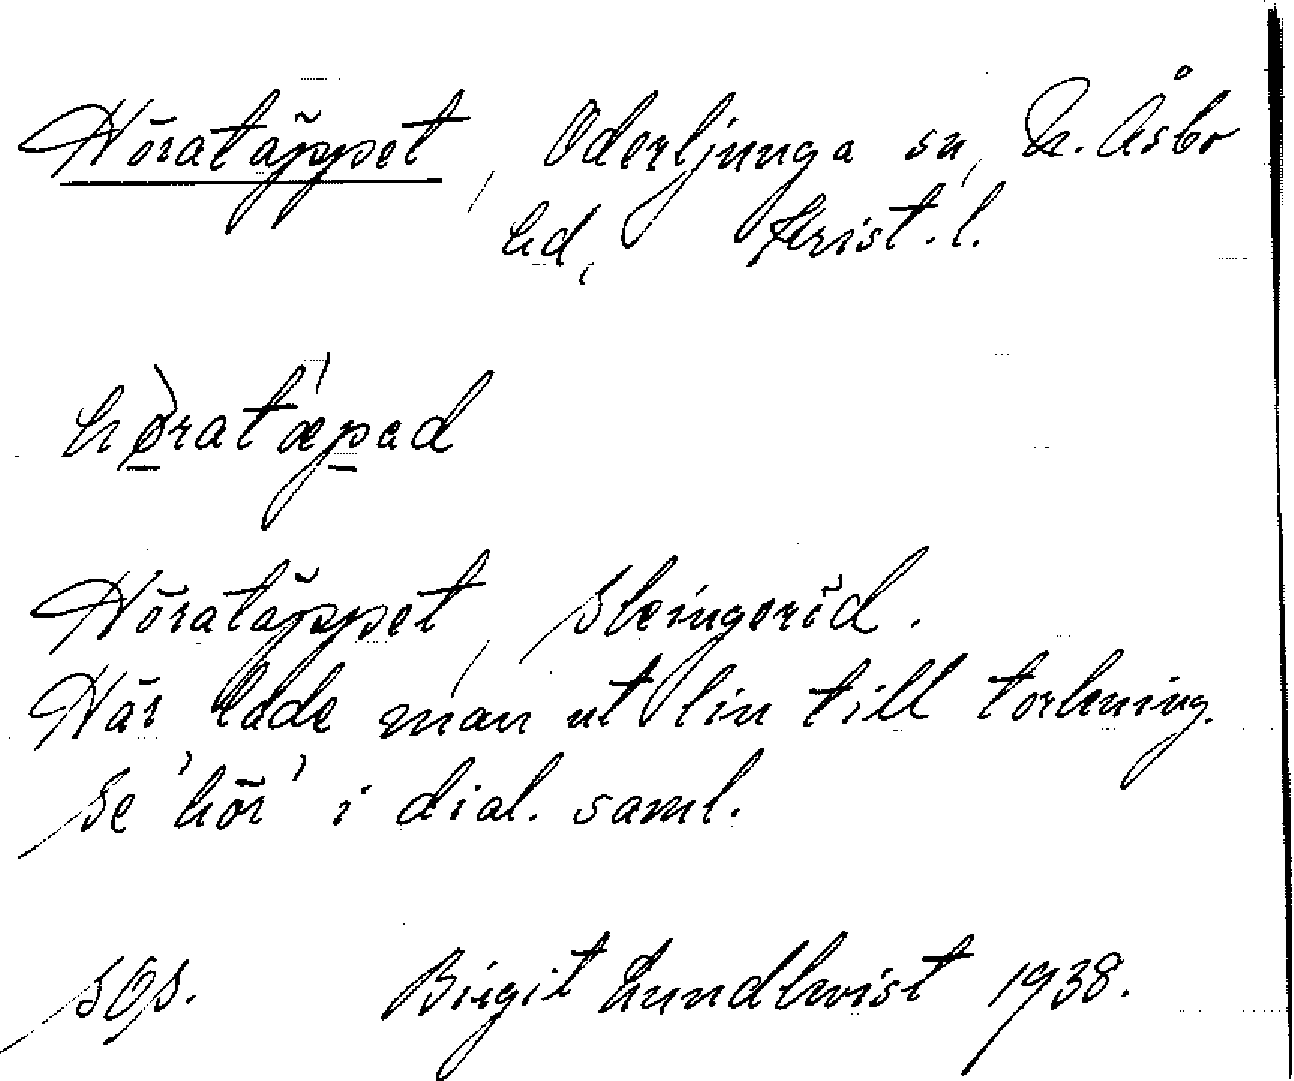 Höratäppet, Oderljunga sn, N. Åsbo
hd, Krist. l.
hø̀ratǽpad
Höratäppet, Skingeröd.
Här lade man ut lin till torkning.
Se 'hör' i dial. saml.
SOS. Birgit Lundkvist 1938.